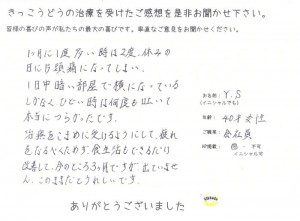 きっこうどうの治療を受けてのご感想を是非お聞かせ下さい。
皆様の喜びの声が私たちの最大の喜びです。率直なご意見をお聞かせください。
1ヶ月に1度、多い時は2度、休みの
日に片頭痛になってしまい、
1日中暗い部屋で横になっている
しかなく、ひどい時は何度も吐いて
本当につらかったです。
治療をこまめに受けるようにして、疲れ
をなるべくためず、食生活もできるだけ
改善して、今のところ3ヶ月ですが、出ていませ
ん。このままだとうれしいです。
お名前： Y.S
(イニシャルでも)
年齢： 40才 女性
ご職業： 会社員
HP掲載： 可 ・ 不可
イニシャル可
ありがとうございました